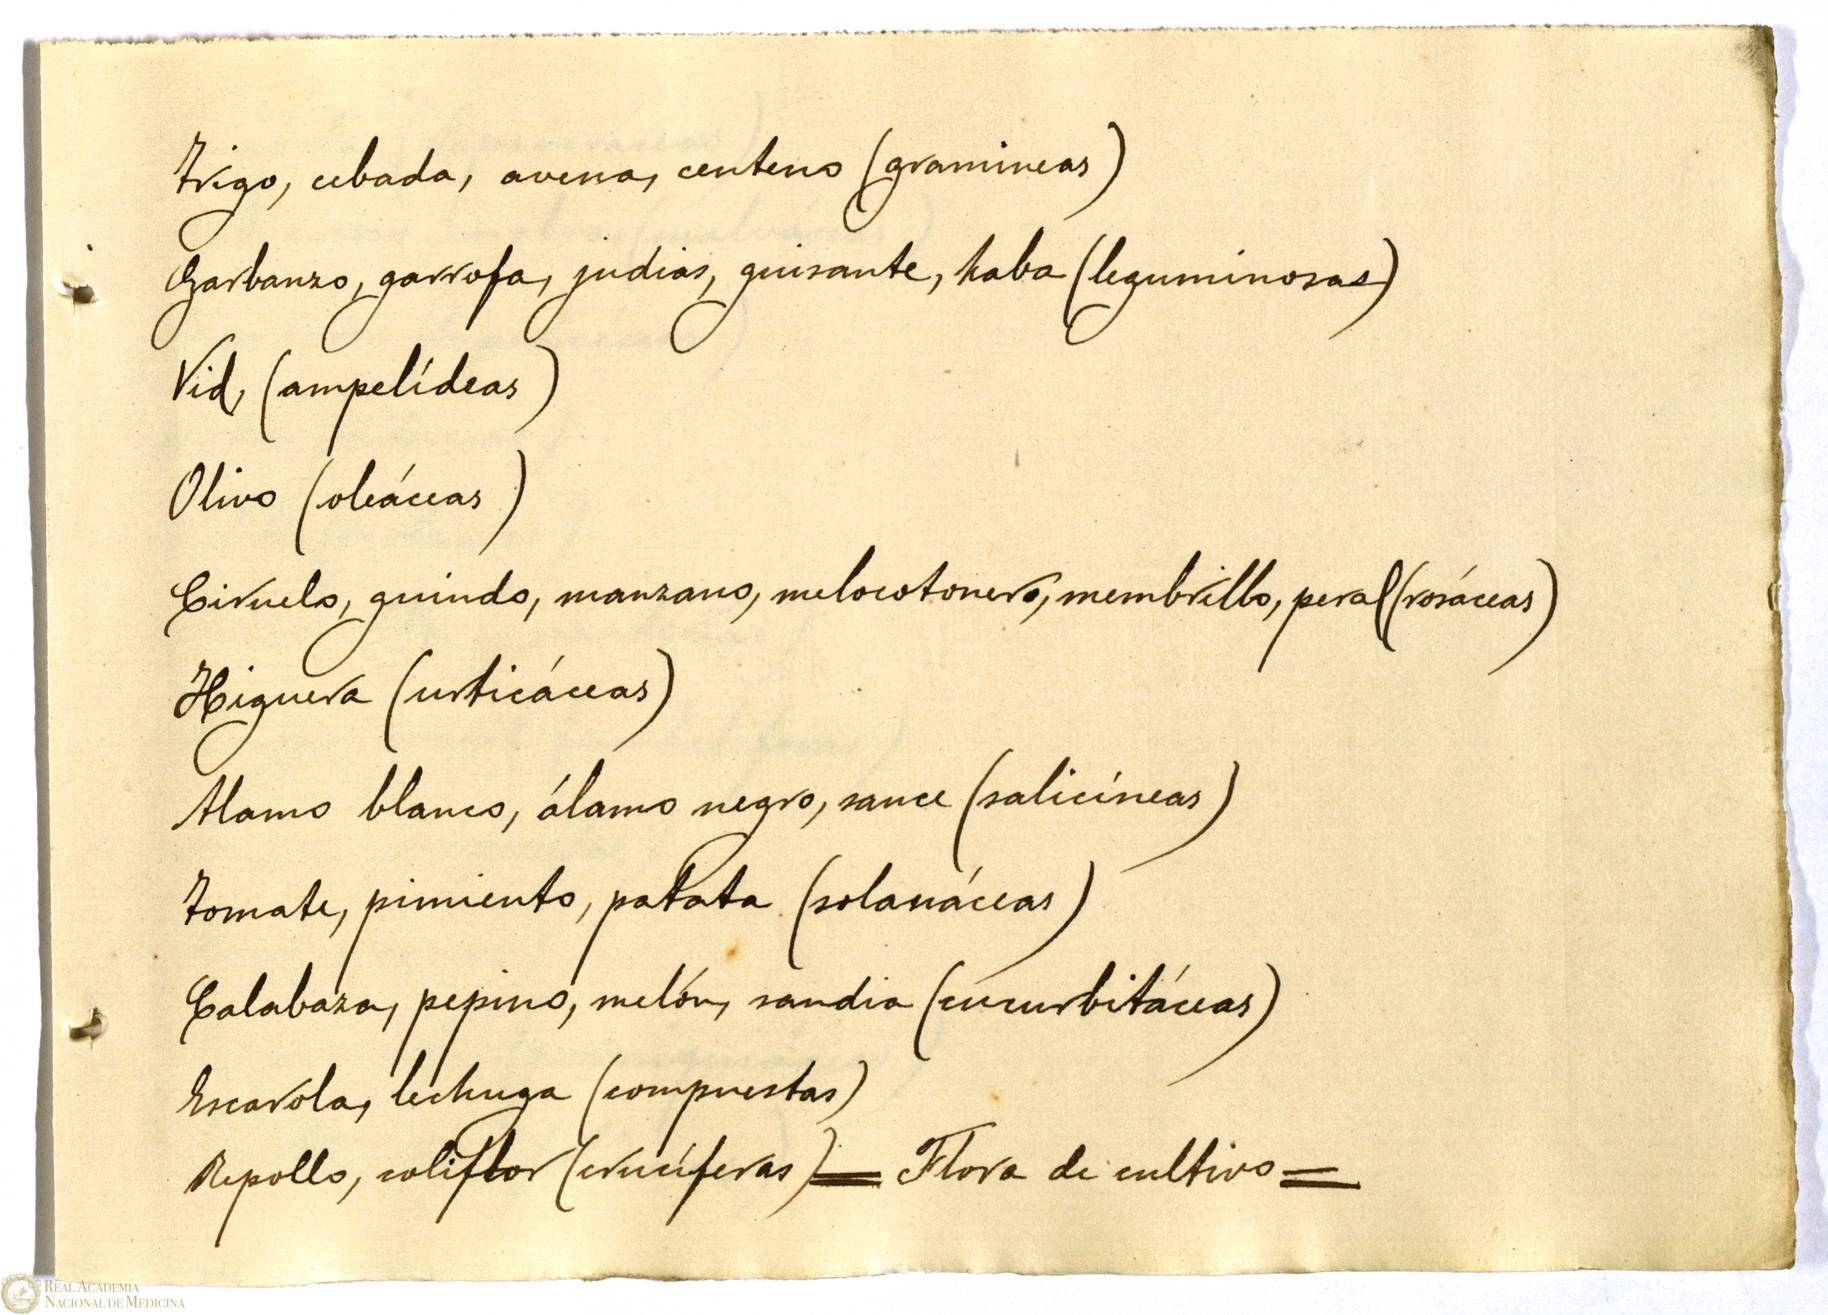 Trigo, cebada, avena, centeno (gramineas)
Garbanzo, garrofa, judias, guisante, haba (leguminosas)
Vid, (ampelídeas)
Olivo (oleáceas)
Ciruelo, guindo, manzano, melocotonero, membrillo, peral (rosáceas)
Higuera (urticáceas)
Alamo blanco, álamo negro, sauce (salicíneas)
Tomate, pimiento, patata (solanáceas)
Calabaza, pepino, melón, sandia (cucurbitáceas)
Escarola, lechuga (compuestas)
Repollo, coliflor (crucíferas) = Flora de cultivo =
REAL ACADEMIA
NACIONAL DE MEDICINA